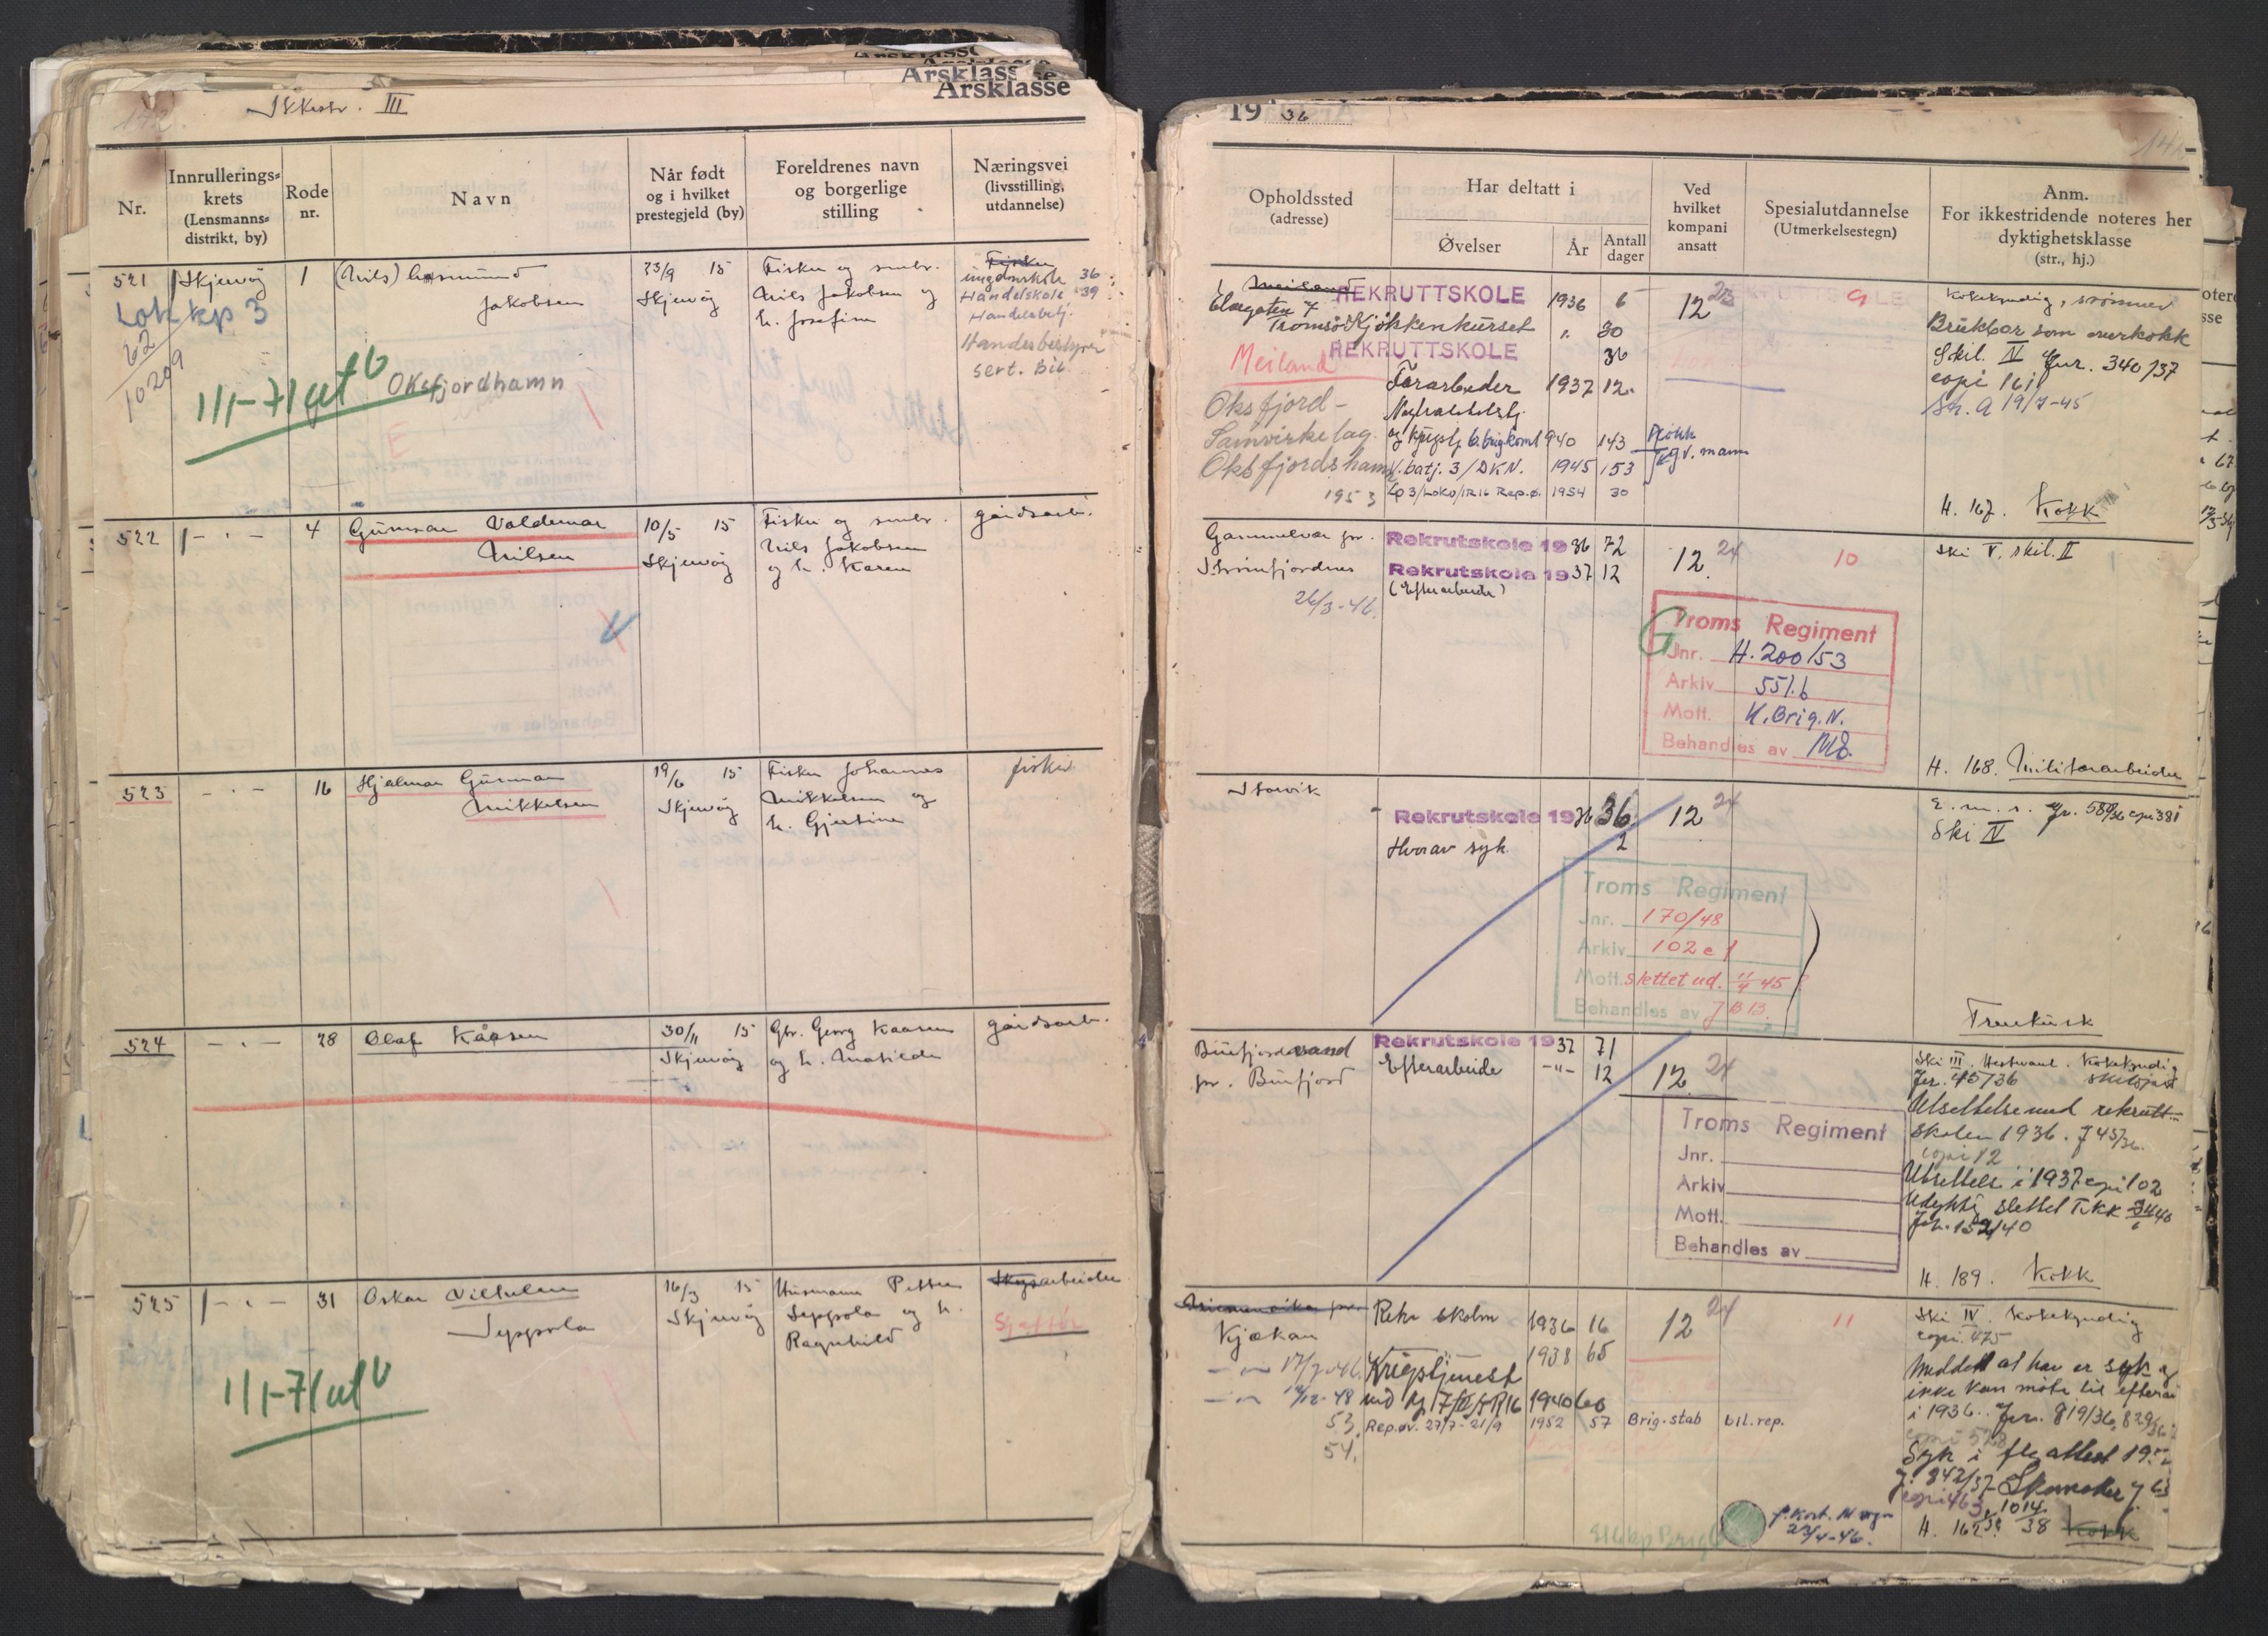 Årsklasse
142.
Ikkestr. III
Nr.
Innrullerings-
krets
(Lensmanns-
distrikt, by)
Rode
nr.
Navn
Når født
og i hvilket
prestegjeld (by)
Foreldrenes navn
og borgerlige
stilling
Næringsvei
(livsstilling,
utdannelse)
521 Skjervøy 1 (Nils)
Jakobsen
23/9 15
Skjervøy
Fisker og småbr.
Nils Jakobsen og
h. Josefine
Fisker
ungdomskole 36
Handelskole 39
Handelsbetj.
Handelsbestyrer
sert. Bil.
Lok kp 3
62
10209
1/1-71 ut
Oksfjordhamn
E
522 - " - 4 Gunnar Valdemar
Nilsen
10/5 15
Skjervøy
Fisker og småbr.
Nils Jakobsen
og h. Karen
gårdsarb.
523 - " - 16 Hjalmar Gunnar
Mikkelsen
19/6 15
Skjervøy
Fisker Johannes
Mikkelsen og
h. Gjertine
fisker
524 - " - 28 Olaf Kåasen
30/11 15
Skjervøy
Gbr. Georg Kaasen
og h. Matilde
gårdsarb.
525 - " - 31 Oskar Vilhelm
Seppola
16/3 15
Skjervøy
Husmann Petter
Seppola og h.
Ragnhild
Skogsarbeider
Sjafför
1/1-71 ut
1936
142
Opholdssted
(adresse)
Har deltatt i
Øvelser
År
Antall
dager
Ved
hvilket
kompani
ansatt
Spesialutdannelse
(Utmerkelsestegn)
Anm.
For ikkestridende noteres her
dyktighetsklasse
(str., hj.)
Meiland
Tromsø
Meiland
Oksfjord-
Samvirkelag.
Oksfjordshamn
1953
REKRUTTSKOLE 1936 6
Kjøkkenkurset " 30
REKRUTTSKOLE 36
Forarbeider 1937 12.
og krigstj. 6. brigkomp 1940 143
V. batj. 3/DKN. 1945 153
Kp 3/Loko/IR16 Rep.ø. 1954 30
12
Kokk
gv. mann
9
Kokekyndig, svømmer
Brukbar som overkokk
Skil. IV Jnr. 340/37
copi 161
Str. a 19/7-45
H. 167. Kokk
Gammelvær pr.
Strømfjordnes
26/3-46.
Rekrutskole 1936 72
Rekrutskole 1937 12
(Efterarbeider)
12. 24
10
Ski V. skil. II
Troms Regiment
Jnr. H. 200/53
Arkiv 551.6
Mott. K. Brig. N.
Behandles av
H. 168. Militærarbeider
Storvik
Rekrutskole 1936 36.
Hvorav syk 2
12 24
Ski IV
Troms Regiment
Jnr. 170/48
Arkiv 102 e 1
Mott. slettet ud. 11/4 45
Behandles av JBB.
Trenkusk
Burfjordvand
pr. Burfjord
Rekrutskole 1937 71
Efterarbeide -"- 12
12. 24
Troms Regiment
Jnr.
Arkiv
Mott.
Behandles av
Ski III. Hestvant. Kokekyndig
Jnr. 45/36
Utsettelse med rekrutt-
skolen 1936. J 45/36.
copi 12
Utsettelse i 1937 copi 102
H. 189. Kokk
Kjækan
53.
54.
Rekr skolen 1936 16
1938 65
Krigstjenest
med Kp 7/II/IR16 1940 60
Rep.øv. 27/7-21/9 1952 57 Brig.stab bil.rep.
12 24
11
Ski IV. Kokekyndig
copi 475
Meddelt at han er syk og
ikke kan møte til efterar
i 1936. Jnr. 819/36, 829/36
copi 463
1014
38 Kokk
23/4-46.